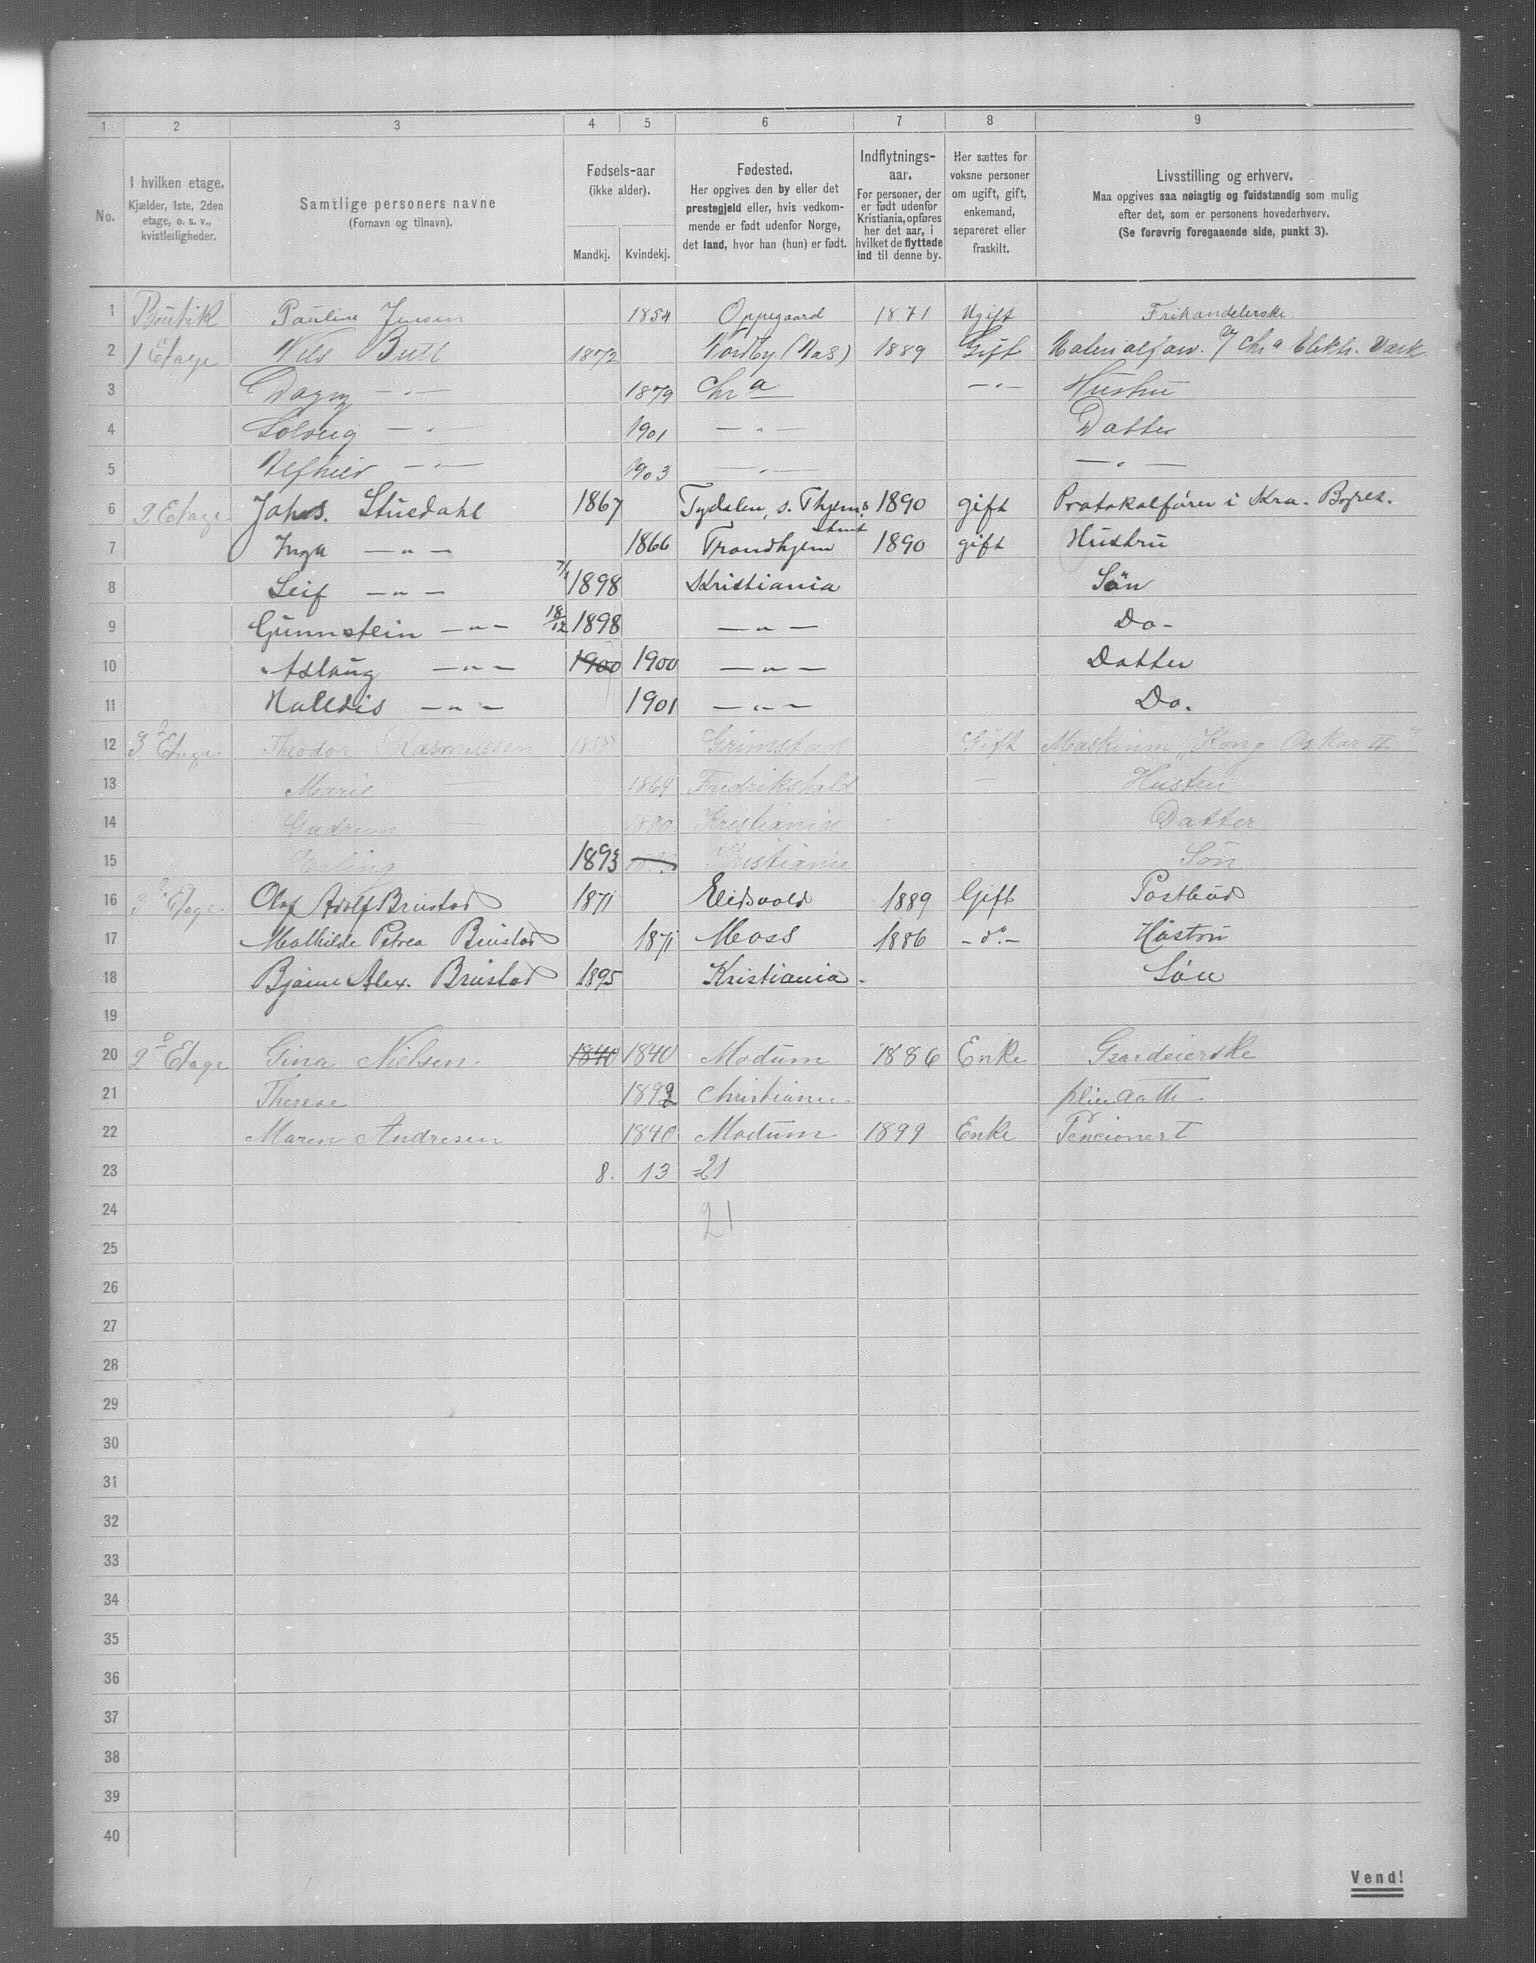 1 2 3 4 5 6 7 8 9
No.
I hvilken etage.
Kjælder, 1ste, 2den
etage, o. s. v.,
kvistleiligheder.
Samtlige personers navne
(Fornavn og tilnavn).
Fødsels-aar
(ikke alder).
Mandkj. Kvindekj.
Fødested.
Her opgives den by eller det
prestegjeld eller, hvis vedkom-
mende er født udenfor Norge,
det land, hvor han (hun) er født.
Indflytnings-
aar.
For personer, der
er født udenfor
Kristiania, opføres
her det aar, i
hvilket de flyttede
ind til denne by.
Her sættes for
voksne personer
om ugift, gift,
enkemand,
separeret eller
fraskilt.
Livsstilling og erhverv.
Maa opgives saa nøiagtig og fuldstændig som mulig
efter det, som er personens hovederhverv.
(Se forøvrig foregaaende side, punkt 3).
1 Boutik Pauline Jensen 1854 Oppegaard 1871 Ugift
2 1 Etage Nils Butl 1872 Nordby (Aas) 1889 Gift Chr a Elektr. Værk
3 Dagny — " — 1879 Chr a — " — Hustru
4 Solveig — " — 1901 — " — Datter
5 — " — 1903 — " — — " —
6 2 Etage Johs. Stuedahl 1867 Tydalen, s. Thjems 1890 gift Protokolfører i Kra. Byret.
7 Inga — " — 1866 Trondhjem 1890 gift Hustru
8 Leif — " — 7/1 1898 Kristiania Søn
9 Gunnstein — " — 18/12 1898 — " — Do -
10 Aslaug — " — 1900 1900 — " — Datter
11 Halldis — " — 1901 — " — Do.
12 3 Etage Theodor Rasmussen Grimstad Gift Maskinm. "Kong Oskar II"
13 Marie 1864 Fredrikshald — Hustru
14 Gudrun Kristiania Datter
15 Erling 1893 Kristiania Søn
16 3 Etage. Olaf Adolf Brustad 1871 Eidsvold 1889 Gift Postbud
17 Mathilde Petrea Brustad 1871 Moss 1886 - do - Hustru
18 Bjarne Alex. Brustad 1895 Kristiania. Søn
19
20 2 Etage Gina Nielsen. 1840 1840 Modum 1886 Enke
21 Therese 1892 Christiania
22 Maren Andresen 1840 Modum 1899 Enke
23 8. 13 =21
24 21
25
26
27
28
29
30
31
32
33
34
35
36
37
38
39
40
Vend!